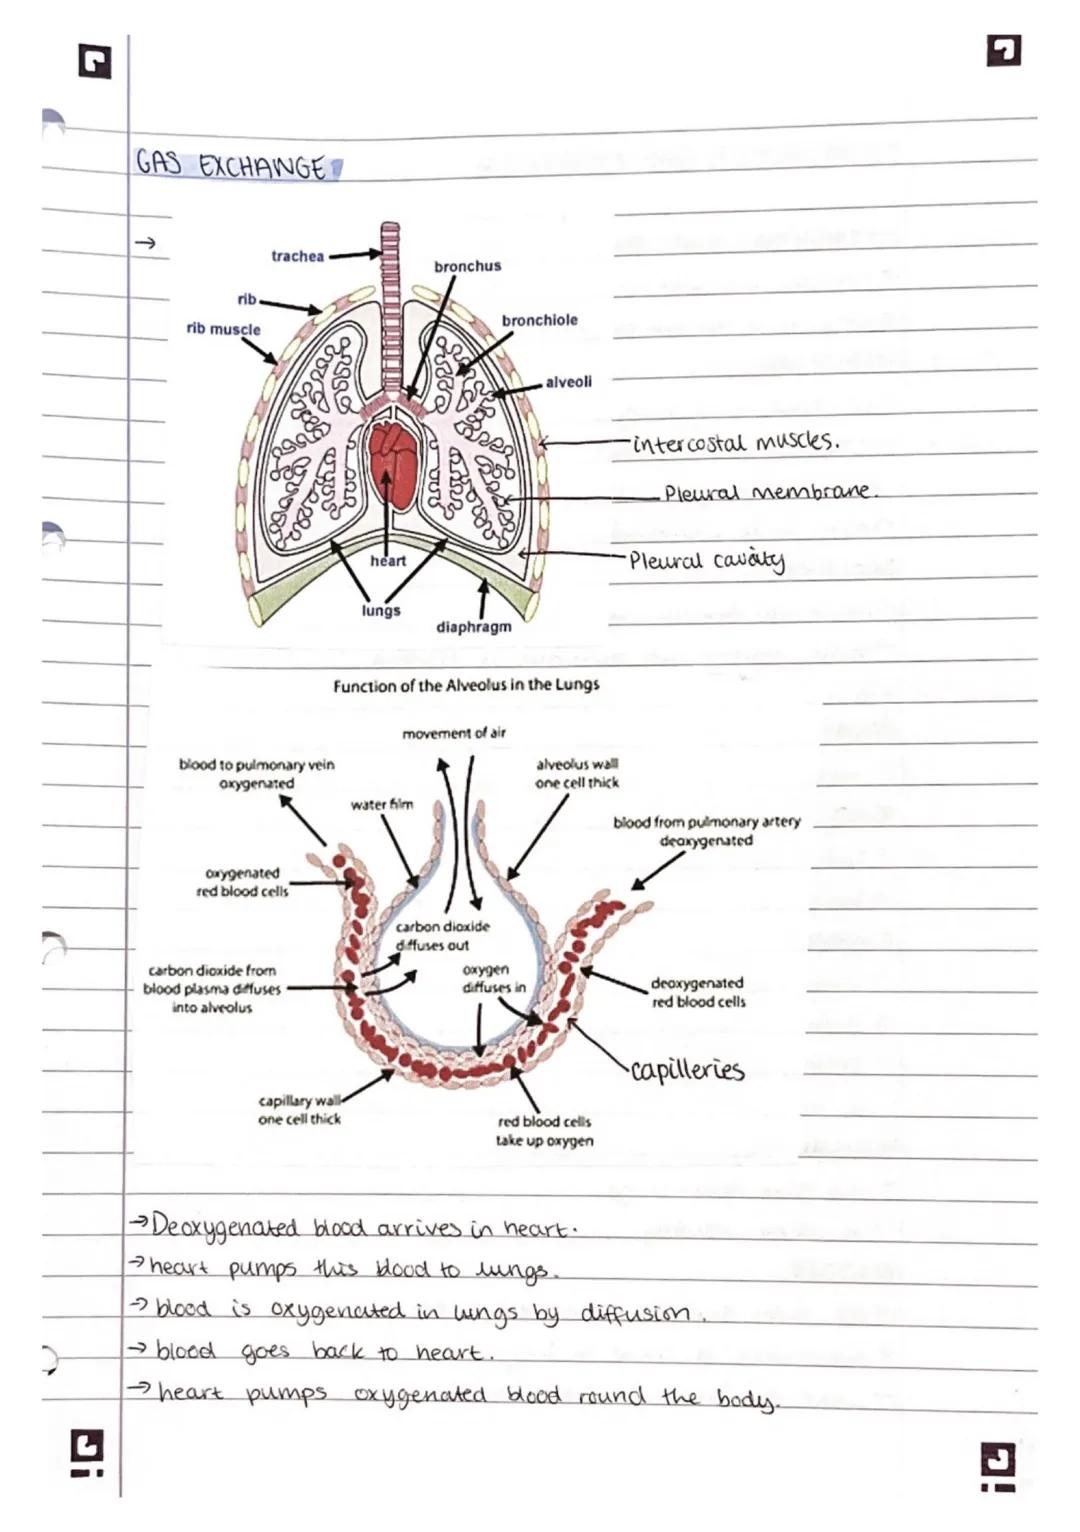 GAS EXCHANGE
→
trachea
bronchus
rib
bronchiole
rib muscle
alveoli
intercostal muscles.
Pleural membrane.
heart
Pleural cavity
lungs
diaphragm
Function of the Alveolus in the Lungs
movement of air
blood to pulmonary vein
oxygenated
alveolus wall
one cell thick
water film
blood from pulmonary artery
deoxygenated
oxygenated
red blood cells
carbon dioxide
diffuses out
carbon dioxide from
blood plasma diffuses
into alveolus
oxygen
diffuses in
deoxygenated
red blood cells
capilleries
capillary wall
one cell thick
red blood cells
take up oxygen
→ Deoxygenated blood arrives in heart.
→ heart pumps this blood to lungs.
→ blood is oxygenated in lungs by diffusion.
→ blood goes back to heart.
→ heart pumps oxygenated blood round the body.